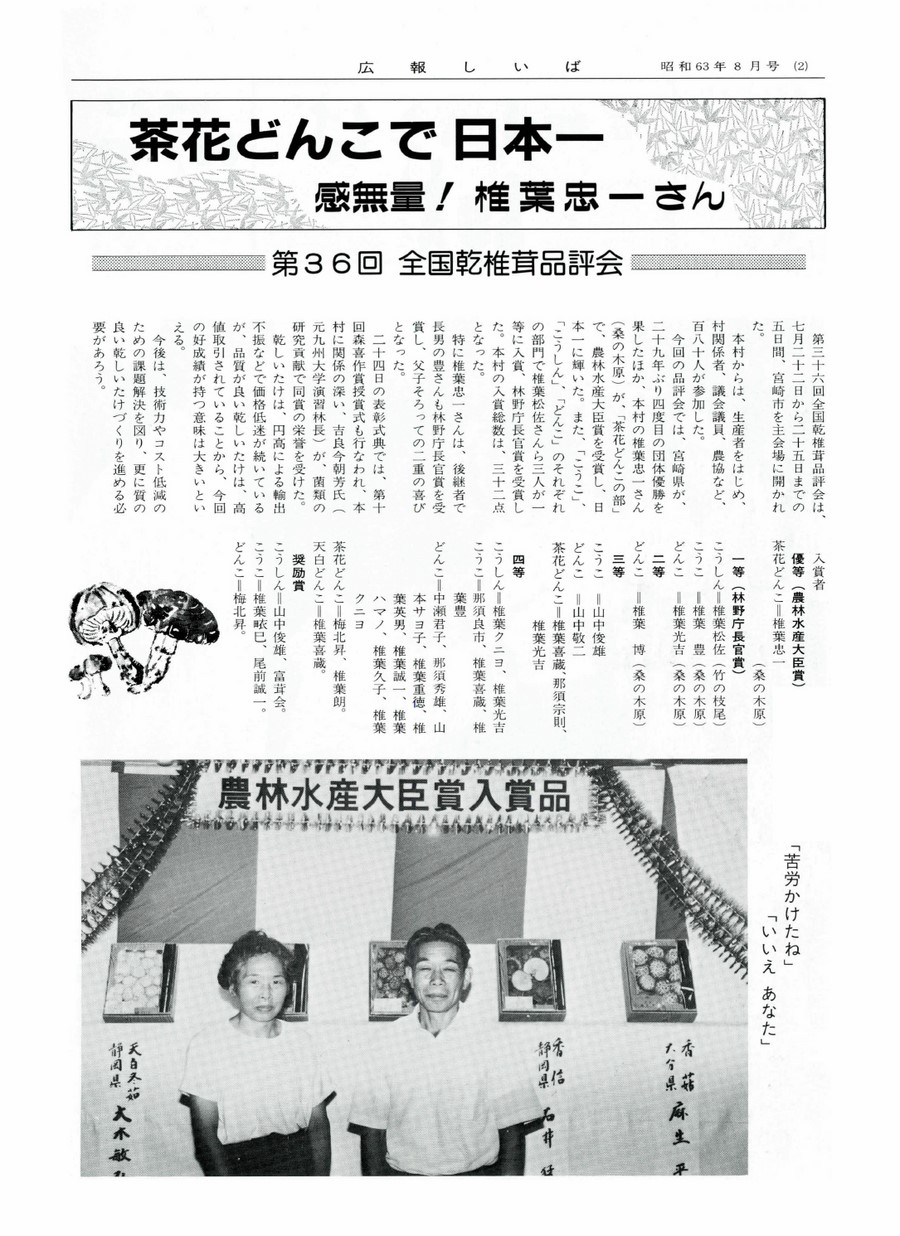 広報しいば
昭和63年8月号 (2)
茶花どんこで 日本一
感無量! 椎葉忠一さん
第36回 全国乾椎茸品評会
第三十六回全国乾椎茸品評会は、
七月二十二日から二十五日までの
五日間、宮崎市を主会場に開かれ
た。
本村からは、生産者をはじめ、
村関係者、議会議員、農協など、
百八十人が参加した。
今回の品評会では、宮崎県が、
二十九年ぶり四度目の団体優勝を
果したほか、本村の椎葉忠一さん
(桑の木原)が、「茶花どんこの部」
で、農林水産大臣賞を受賞し、日
本一に輝いた。また、「こうこ」、
「こうしん」、「どんこ」のそれぞれ
の部門で椎葉松佐さんら三人が一
等に入賞、林野庁長官賞を受賞し
た。本村の入賞総数は、三十二点
となった。
特に椎葉忠一さんは、後継者で
長男の豊さんも林野庁長官賞を受
賞し、父子そろっての二重の喜び
となった。
二十四日の表彰式典では、第十
回森喜作賞授賞式も行なわれ、本
村に関係の深い、吉良今朝芳氏(
元九州大学演習林長)が、菌類の
研究貢献で同賞の栄誉を受けた。
乾しいたけは、円高による輸出
不振などで価格低迷が続いている
が、品質が良い乾しいたけは、高
値取引されていることから、今回
の好成績が持つ意味は大きいとい
える。
今後は、技術力やコスト低減の
ための課題解決を図り、更に質の
良い乾しいたけづくりを進める必
要があろう。
入賞者
優等(農林水産大臣賞)
茶花どんこ=椎葉忠一
(桑の木原)
一等(林野庁長官賞)
こうしん=椎葉松佐(竹の枝尾)
こうこ =椎葉 豊(桑の木原)
どんこ =椎葉光吉(桑の木原)
二等
どんこ =椎葉 博(桑の木原)
三等
こうこ =山中俊雄
どんこ =山中敬二
茶花どんこ=椎葉喜蔵、那須宗則、
椎葉光吉
四等
こうしん=椎葉クニヨ、椎葉光吉
こうこ=那須良市、椎葉喜蔵、椎
葉豊
どんこ=中瀬君子、那須秀雄、山
本サヨ子、椎葉重徳、椎
葉英男、椎葉誠一、椎葉
ハマノ、椎葉久子、椎葉
クニヨ
茶花どんこ=梅北昇、椎葉朗。
天白どんこ=椎葉喜蔵。
奨励賞
こうしん=山中俊雄、富茸会。
こうこ=椎葉畩巳、尾前誠一。
どんこ=梅北昇。
農林水産大臣賞入賞品
「苦労かけたね」
「いいえ あなた」
香菇
大分県 麻生 平
香信
静岡県 石井
天白冬菇
静岡県 大木敏